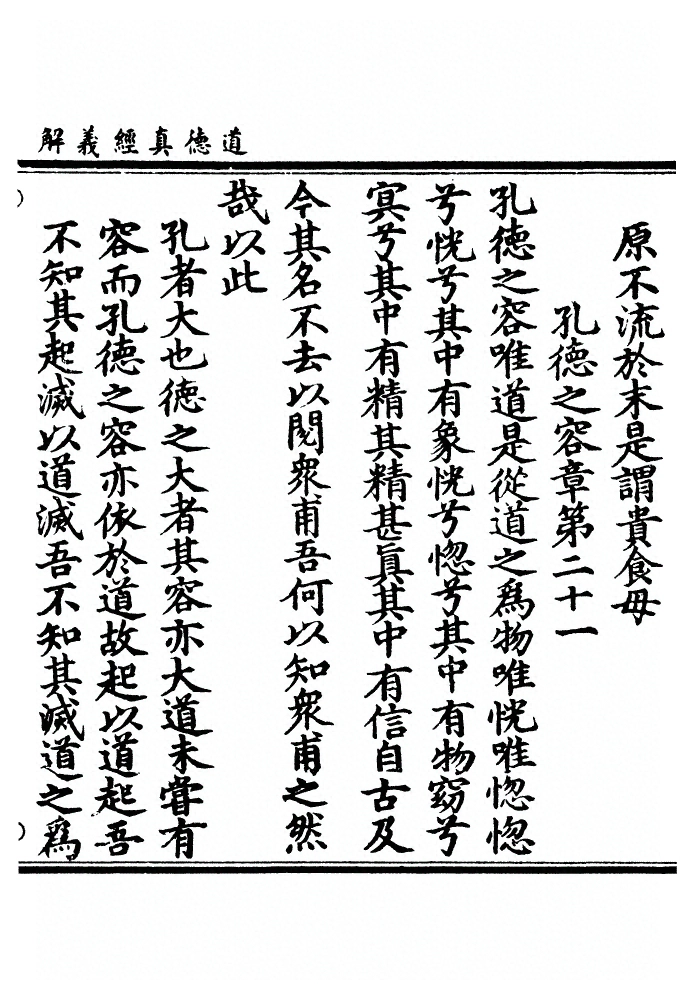 道德真經義解
原不流於末是謂貴食母
孔德之容章第二十一
孔德之容唯道是從道之爲物唯恍唯惚惚
兮恍兮其中有象恍兮惚兮其中有物窈兮
冥兮其中有精其精甚真其中有信自古及
今其名不去以閱衆甫吾何以知衆甫之然
哉以此
孔者大也德之大者其容亦大道未嘗有
容而孔德之容亦依於道故起以道起吾
不知其起滅以道滅吾不知其滅道之爲